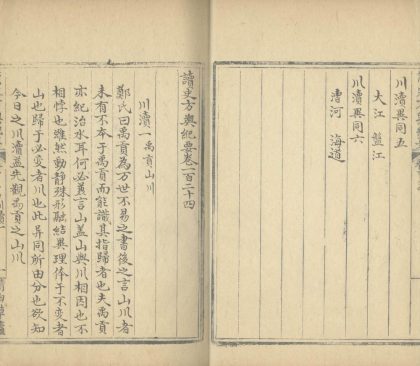 川瀆異同五
大江 盤江
川瀆異同六
漕河 海道
讀史方輿紀要卷一百二十四
川瀆一 禹貢山川
鄭氏曰禹貢為萬世不易之書後之言山川者
未有不本于禹貢而能識其指歸者也夫禹貢
亦紀治水耳何必兼言山蓋山與川相因也不
相悖也雖然動靜殊形融結異理于不變者
山也歸于必變者川也此异同所由分也欲知
今日之川瀆盍先觀禹貢之山川